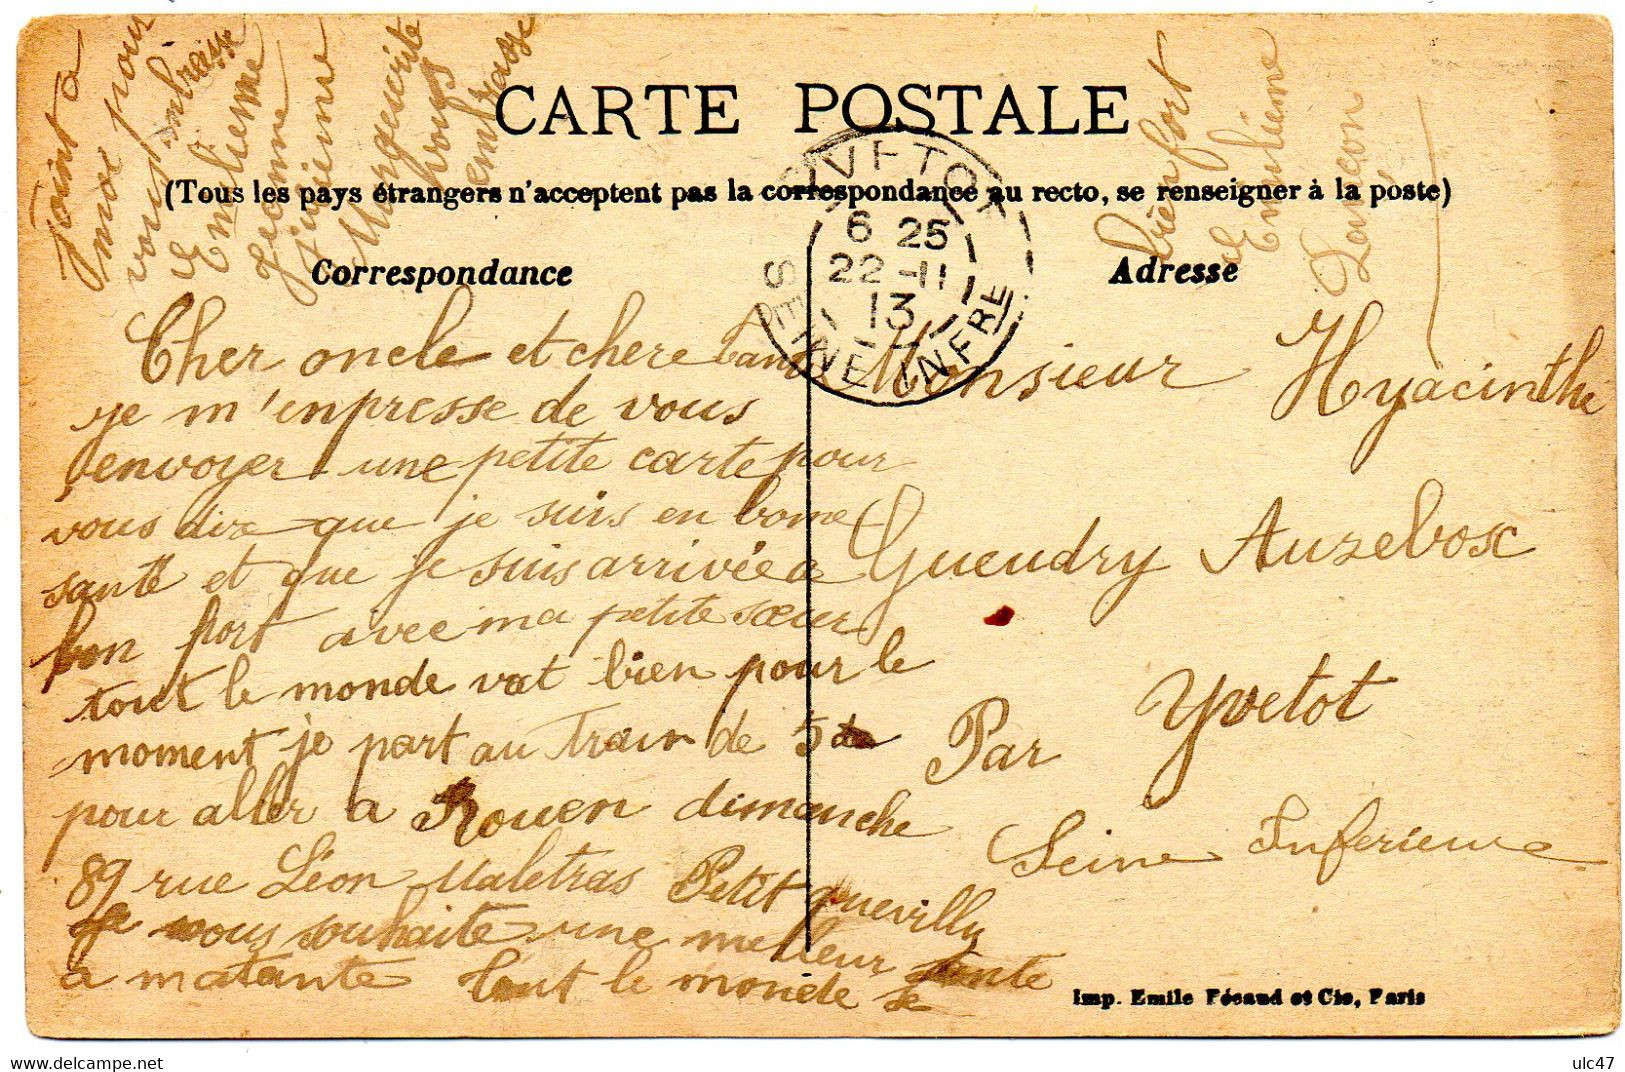 CARTE POSTALE
(Tous les pays étrangers n'acceptent pas la correspondance au recto, se renseigner à la poste)
Correspondance
Adresse
YVETOT
6 25
22 - 11
13
SEINE INFRE
Cher oncle et chere tante
je m'enpresse de vous
envoyer une petite carte pour
vous dire que je suis en bonne
santé et que je suis arrivée a
bon port avec ma petite sœur
tout le monde vat bien pour le
moment je part au train de 5
pour aller a Rouen dimanche
89 rue Léon Maletras Petit quevilly
je vous souhaite une meilleur sante
a matante tout le monde se
Joint a
moi pour
vous embrasse
Emilienne
Jeanne
Marguerite
vous
embrasse
bien fort
Emilienne
Monsieur Hyacinthe
Gueudry Auzebosc
Par Yvetot
Seine Inferieure
Imp. Emile Pécaud et Cie, Paris
ulc47
delcampe.net